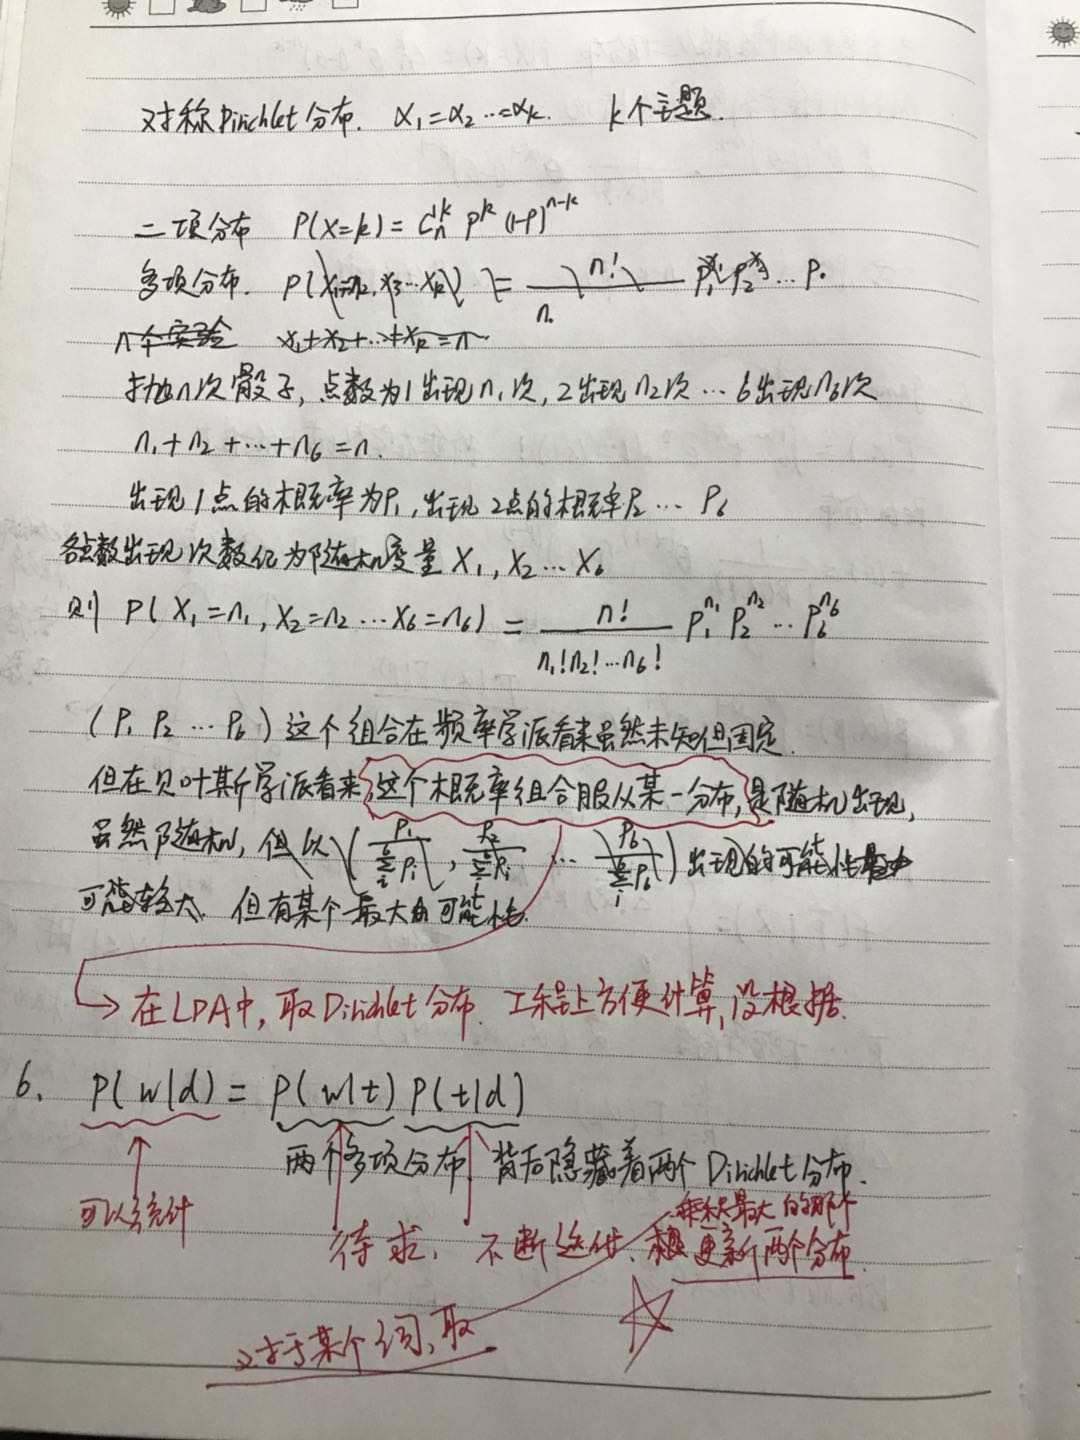 对称Dirichlet分布. α₁=α₂…=αₖ. k个主题.
二项分布 P(X=k) = Cₙᵏ pᵏ (1-p)ⁿ⁻ᵏ
多项分布. P( ) = n! / n.
n个实验 x₁+x₂+…+xₖ=n
抛n次骰子, 点数为1出现n₁次, 2出现n₂次…6出现n₆次
n₁+n₂+…+n₆=n.
出现1点的概率为P₁, 出现2点的概率P₂ … P₆
各点数出现次数记为随机变量 X₁, X₂…X₆
则 P( X₁=n₁, X₂=n₂ …X₆=n₆) = n! / n₁!n₂!…n₆! P₁ⁿ¹ P₂ⁿ² … P₆ⁿ⁶
(P₁ P₂ … P₆) 这个组合在频率学派看来虽然未知但固定.
但在贝叶斯学派看来, 这个概率组合服从某一分布, 是随机出现,
虽然随机, 但以 ( , … ) 出现的可能性
可能较大. 但有某个最大的可能性.
→ 在LDA中, 取Dirichlet分布. 工程上方便计算, 没根据.
6. P(w|d) = P(w|t) P(t|d)
两个多项分布. 背后隐藏着两个Dirichlet分布.
可以统计
乘积最大的那个
待求. 不断迭代、更新两个分布.
对于某个词, 取